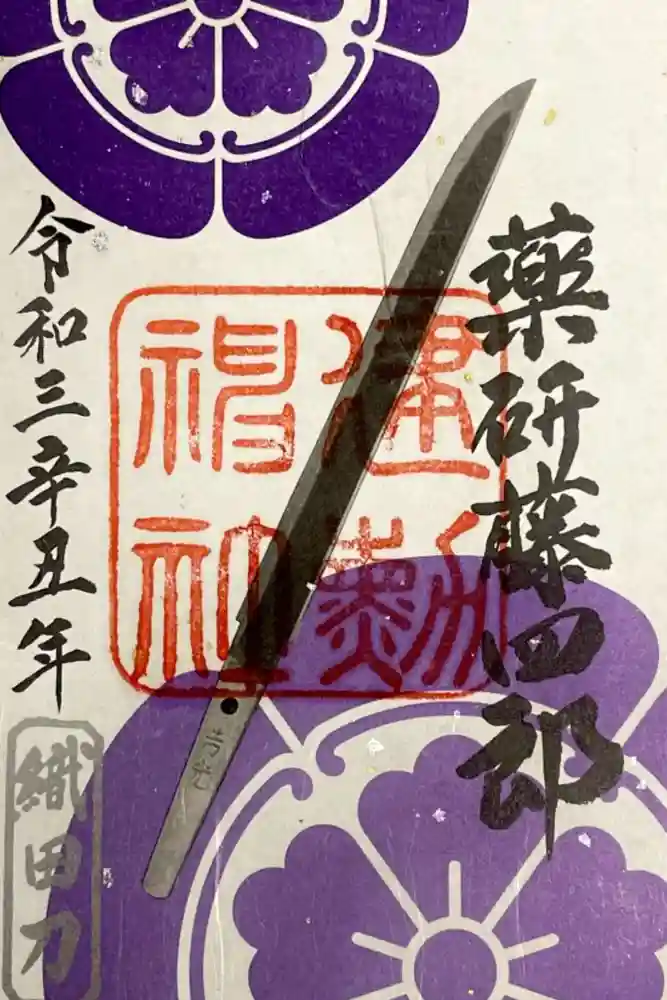 薬研藤四郎
建勲
神社
吉光
令和三辛丑年
織田刀